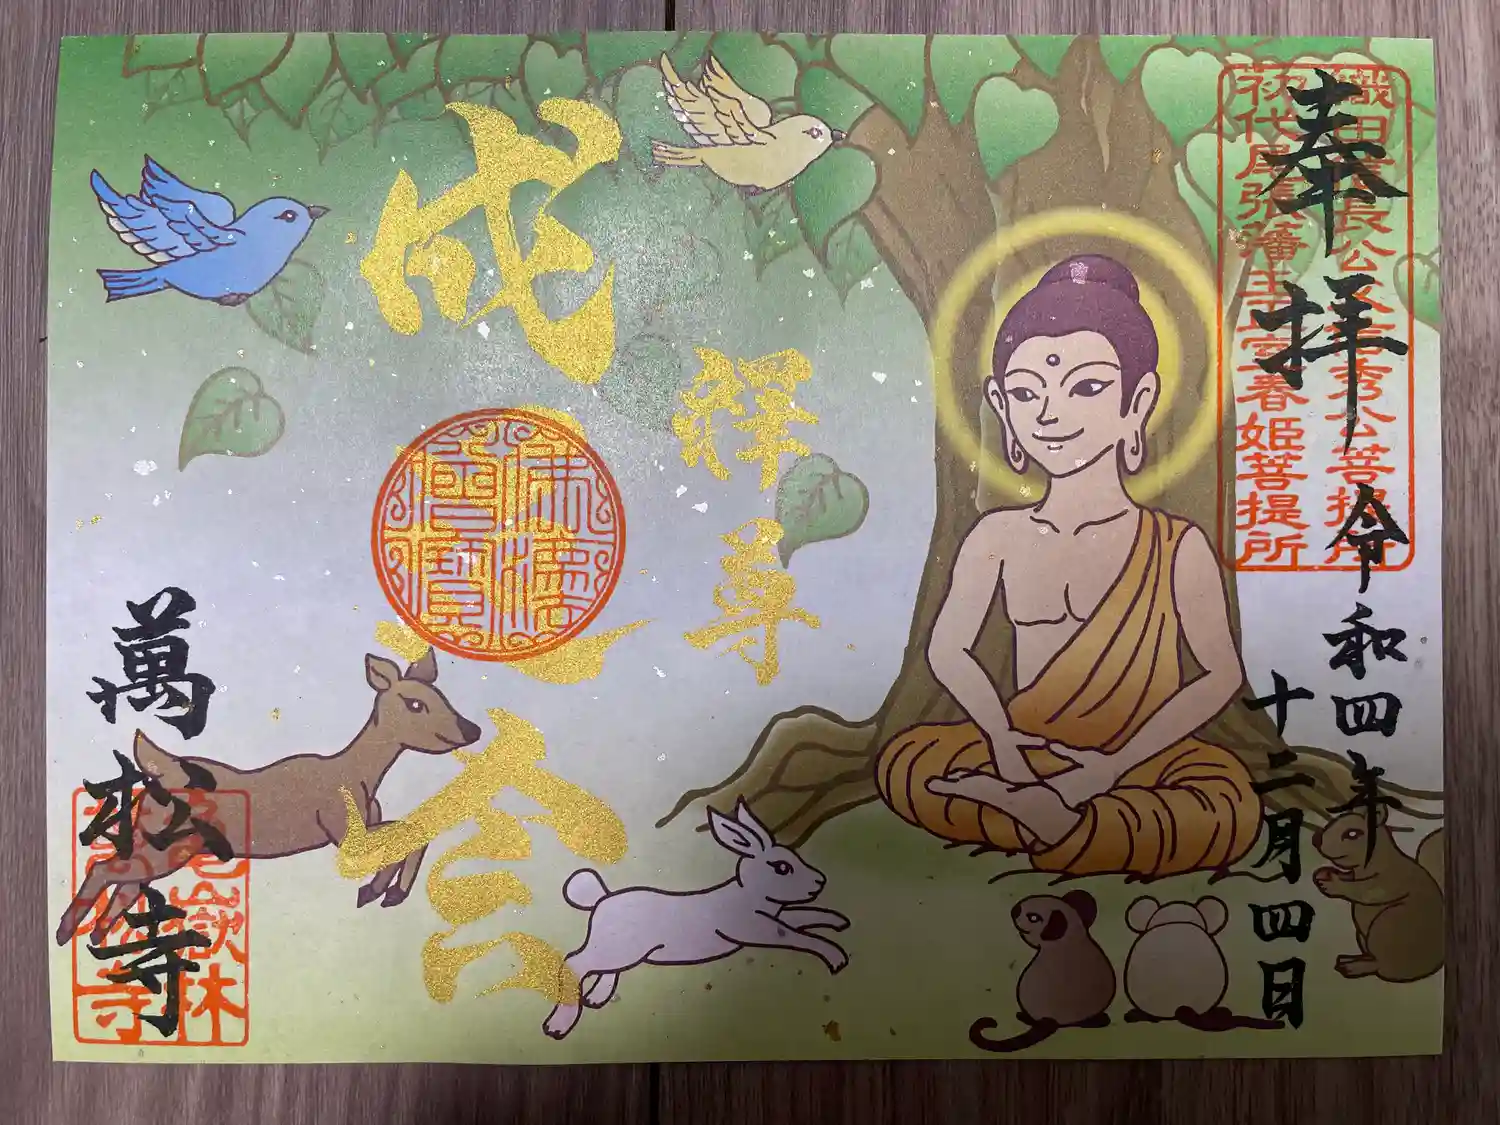 奉拝
織田信長公父信秀公菩提所
初代尾張藩主正室春姫菩提所
令和四年
十二月四日
釋尊
成道會
萬松寺
亀嶽林
萬松寺